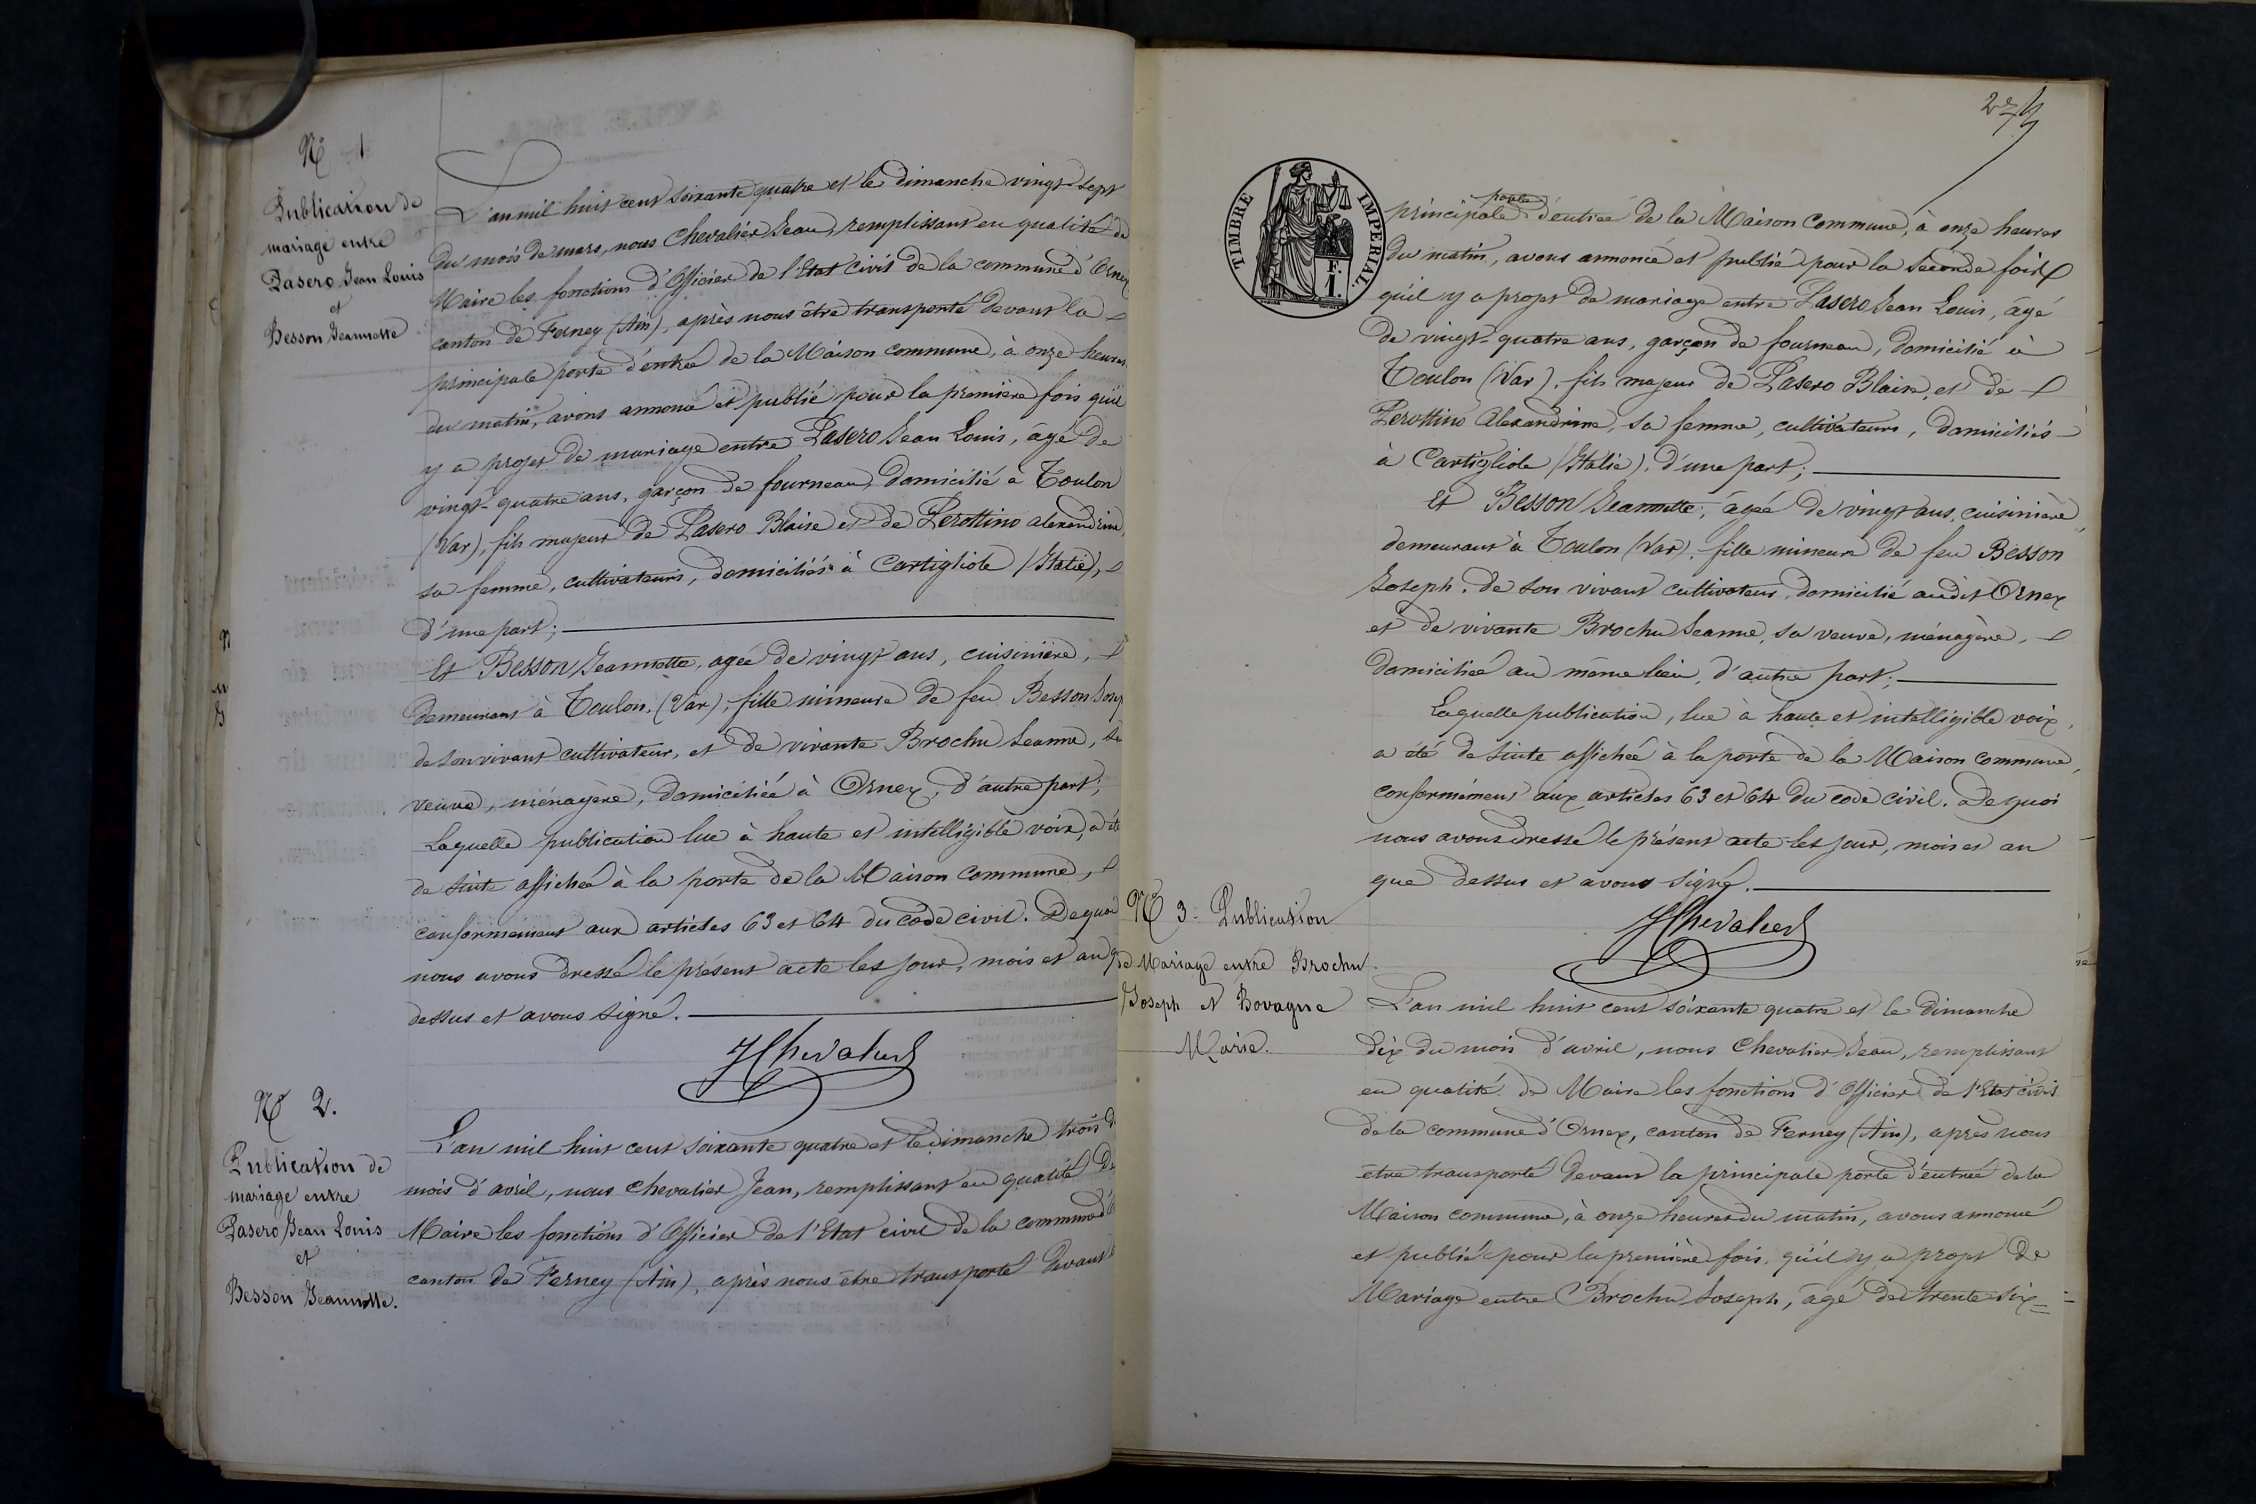 Nº 1
Publication de
mariage entre
Pasero Jean Louis
et
Besson Jeannette
L'an mil huit cent soixante quatre et le dimanche vingt-sept
du mois de mars, nous Chevalier Jean, remplissant en qualité de
Maire les fonctions d'Officier de l'Etat civil de la commune d'Ornex
canton de Ferney (Ain), après nous être transporté devant la
principale porte d'entrée de la Maison commune, à onze heures
du matin, avons annoncé et publié pour la première fois qu'il
y a projet de mariage entre Pasero Jean Louis, âgé de
vingt-quatre ans, garçon de fourneau, domicilié à Toulon
(Var), fils majeur de Pasero Blaise et de Perottino Alexandrine,
sa femme, cultivateurs, domiciliés à Cartigliole (Italie),
d'une part;
Et Besson Jeannette, agée de vingt ans, cuisinière,
demeurant à Toulon, (Var), fille mineure de feu Besson
de son vivant cultivateur, et de vivante Brochu Jeanne, sa
veuve, ménagère, domiciliée à Ornex, d'autre part;
Laquelle publication lue à haute et intelligible voix, a été
de suite affichée à la porte de la Maison commune,
conformément aux articles 63 et 64 du code civil. De quoi
nous avons dressé le présent acte les jour, mois et an que
dessus et avons signé.
JChevalier
Nº 2.
Publication de
mariage entre
Pasero Jean Louis
et
Besson Jeannette.
L'an mil huit cent soixante quatre et le dimanche trois du
mois d'avril, nous Chevalier Jean, remplissant en qualité de
Maire les fonctions d'Officier de l'Etat civil de la commune
canton de Ferney (Ain), après nous être transporté devant
TIMBRE IMPERIAL.
F.
1.
porte
principale d'entrée de la Maison Commune, à onze heures
du matin, avons annoncé et publié pour la seconde fois
qu'il y a projet de mariage entre Pasero Jean Louis, âgé
de vingt-quatre ans, garçon de fourneau, domicilié à
Toulon (Var), fils majeur de Pasero Blaise, et de
Perottino Alexandrine, sa femme, cultivateurs, domiciliés
à Cartigliole (Italie), d'une part;
Et Besson Jeannette, âgée de vingt ans, cuisinière,
demeurant à Toulon (Var), fille mineure de feu Besson
Joseph, de son vivant cultivateur, domicilié audit Ornex
et de vivante Brochu Jeanne, sa veuve, ménagère,
domiciliée au même lieu, d'autre part;
Laquelle publication, lue à haute et intelligible voix,
a été de suite affichée à la porte de la Maison commune,
conformément aux articles 63 et 64 du code civil. De quoi
nous avons dressé le présent acte les jour, mois et an
que dessus et avons signé.
JChevalier
Nº 3. Publication
de Mariage entre Brochu
Joseph et Bovagne
Marie.
L'an mil huit cent soixante quatre et le dimanche
dix du mois d'avril, nous Chevalier Jean, remplissant
en qualité de Maire les fonctions d'Officier de l'Etat civil
de la commune d'Ornex, canton de Ferney (Ain), après nous
être transporté devant la principale porte d'entrée de la
Maison commune, à onze heures du matin, avons annoncé
et publié pour la première fois, qu'il y a projet de
Mariage entre Brochu Joseph, âgé de trente-six